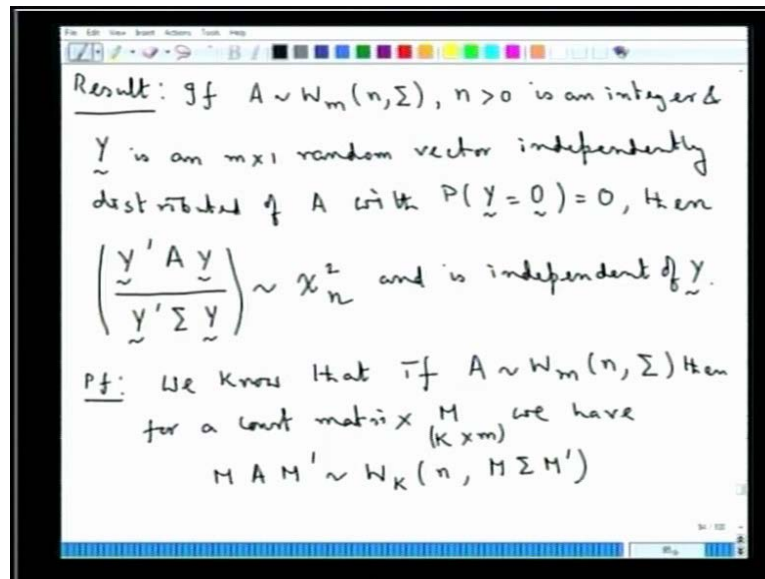 File Edit View Insert Actions Tools Help
Result: If A ~ W_m(n, Σ), n > 0 is an integer &
Y is an m×1 random vector independently
distributed of A with P(Y = 0) = 0, then
(Y'AY / Y'ΣY) ~ χ²_n and is independent of Y.
Pf: We know that if A ~ W_m(n, Σ) then
for a const matrix M we have
(K×m)
M A M' ~ W_K(n, M Σ M')